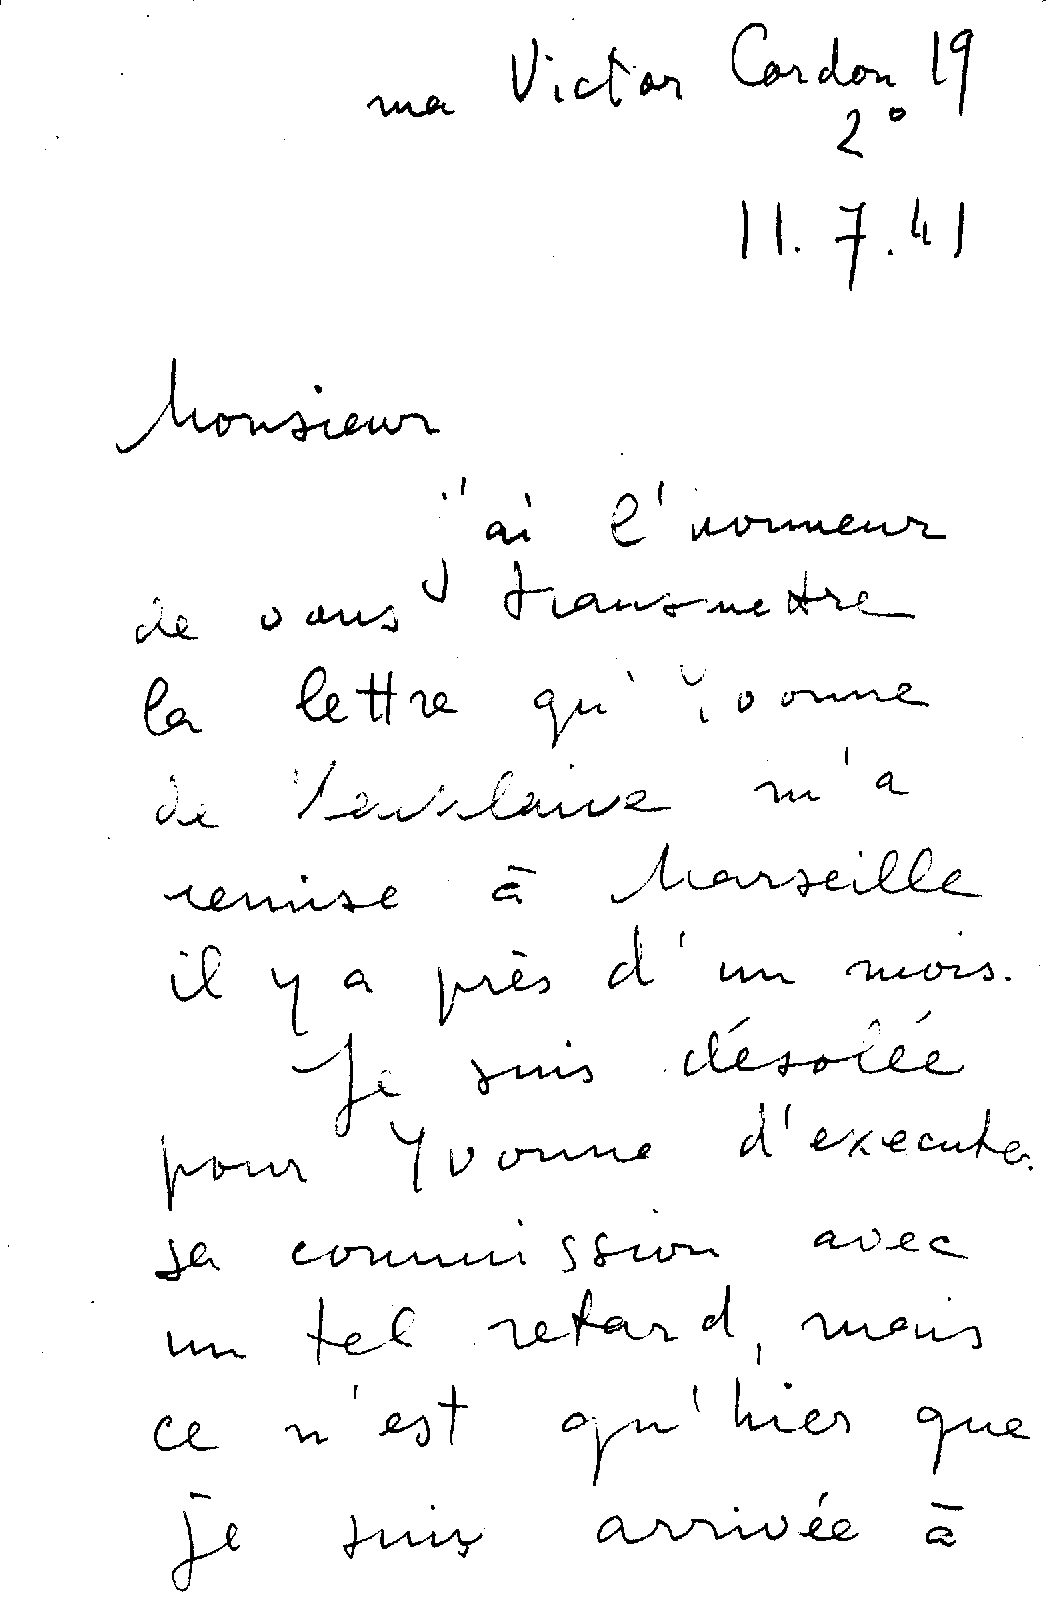 rua Victor Cordon 19
2º
11.7.41
Monsieur
j'ai l'honneur
de vous transmettre
la lettre qu'Yvonne
de m'a
remise à Marseille
il y a près d'un mois.
Je suis désolée
pour Yvonne d'executer
sa commission avec
un tel retard, mais
ce n'est qu'hier que
je suis arrivée à